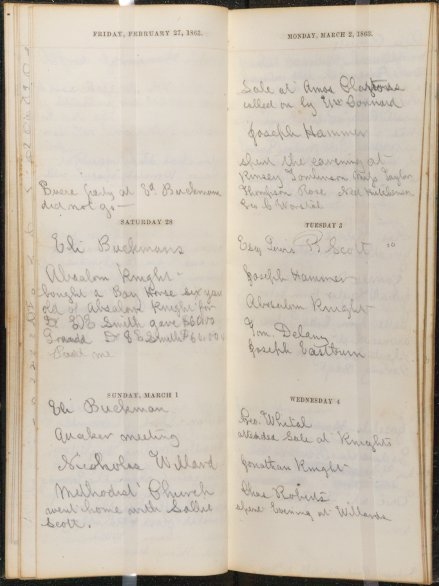 FRIDAY, FEBRUARY 27, 1863.
party at Ed. Buckmans
did not go —
SATURDAY 28
Eli Buckmans
Absalom Knight
bought a Bay Horse six year
old of Absalom Knight for
Dr. Smith gave $60.00
Dr. Smith $60.00
me
SUNDAY, MARCH 1
Eli Buckman
Quaker meeting
Nickolas Willard
Methodist Church
went home with Sallie
Scott.
MONDAY, MARCH 2, 1863.
Sale at Amos Claytons
called on by Wm
Joseph Hammer
spent the evening at
Kinsey Tomlinson Taylor
Thompson Rose Hutchinson
Geo. C. Worstal
TUESDAY 3
Esq. Scott
Joseph Hammer
Absalom Knight
Tom Delany
Joseph Eastburn
WEDNESDAY 4
Geo. Whital
attended Sale at Knights
Jonathan Knight
Chas Roberts
spent Evening at Willards